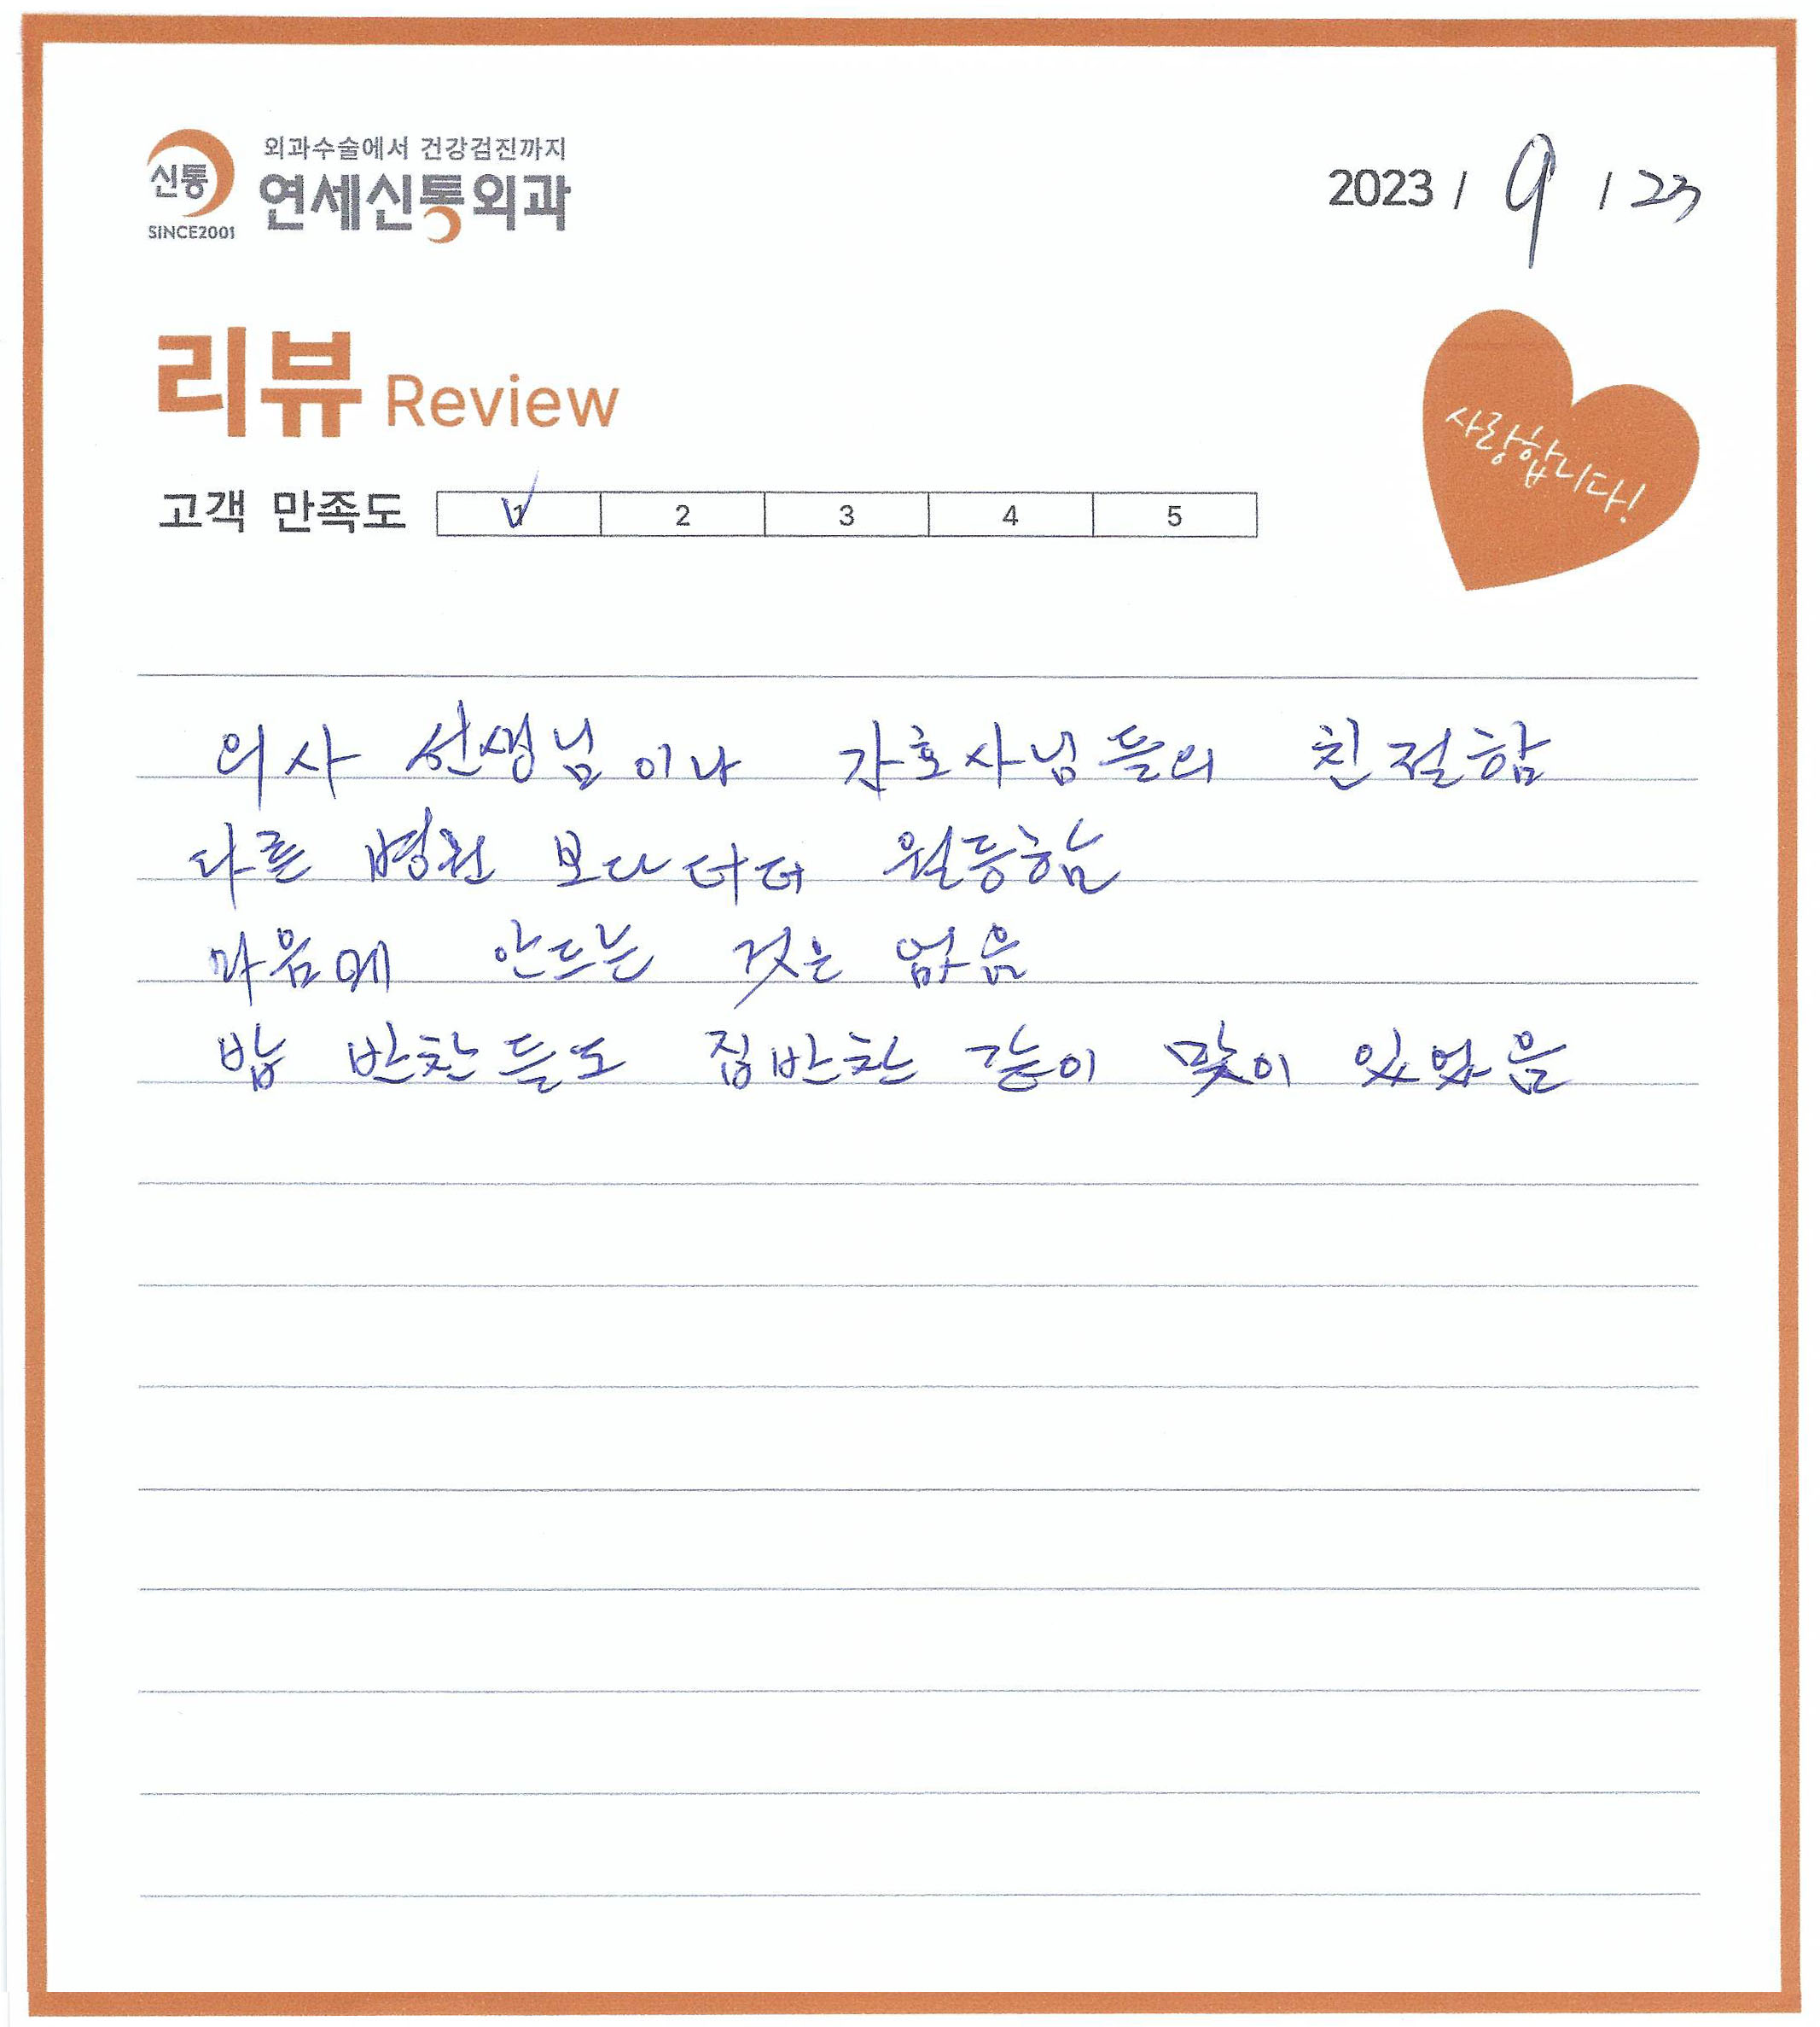 신통
SINCE2001
외과수술에서 건강검진까지
연세신통외과
2023 / 9 / 23
리뷰 Review
사랑합니다!
고객 만족도 1 2 3 4 5
의사 선생님이나 간호사님들의 친절함
다른 병원 보다 더더 월등함
마음에 안드는 것은 없음
밥 반찬들도 집반찬 같이 맞이 있었음